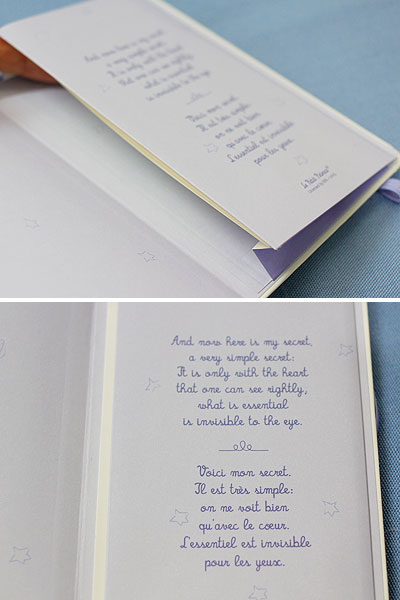 And now here is my secret,
a very simple secret:
It is only with the heart
that one can see rightly,
what is essential
is invisible to the eye.
Voici mon secret.
Il est très simple:
on ne voit bien
qu'avec le cœur.
L'essentiel est invisible
pour les yeux.
Le Petit Prince
And now here is my secret,
a very simple secret:
It is only with the heart
that one can see rightly,
what is essential
is invisible to the eye.
Voici mon secret.
Il est très simple:
on ne voit bien
qu'avec le cœur.
L'essentiel est invisible
pour les yeux.